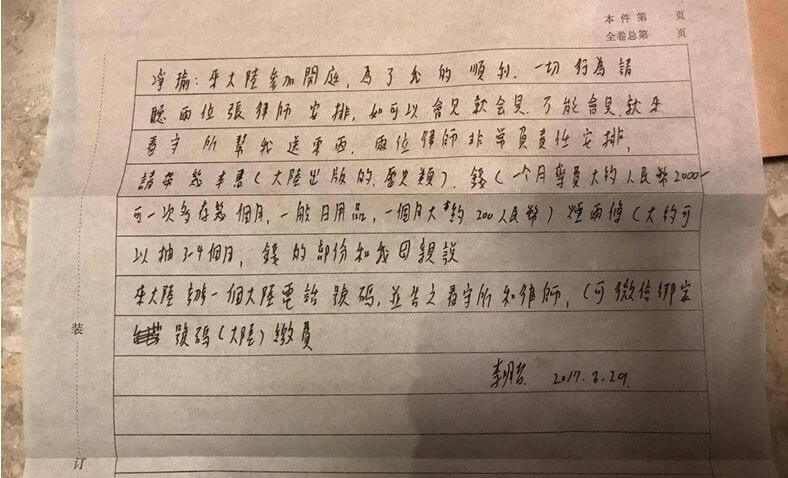 本件第 页
全卷总第 页
净瑜：來大陸參加開庭，為了我的順利．一切行為請
聽兩位張律師安排，如可以會見就会見．不能會見．就來
看守所幫我送東西．兩位律師非常負責任安排，
請帶幾本書（大陸出版的．歷史類）．錢（一个月費大約人民幣2000-
可一次多存幾個月，一般日用品，一個月大約200人民幣）煙兩條（大約可
以抽3-4個月，錢的部份和我母親說
來大陸辦一個大陸電話號碼，並告之看守所和律師，（可微信綁定
號碼（大陸）繳費
李明哲 2017.8.29
装
订